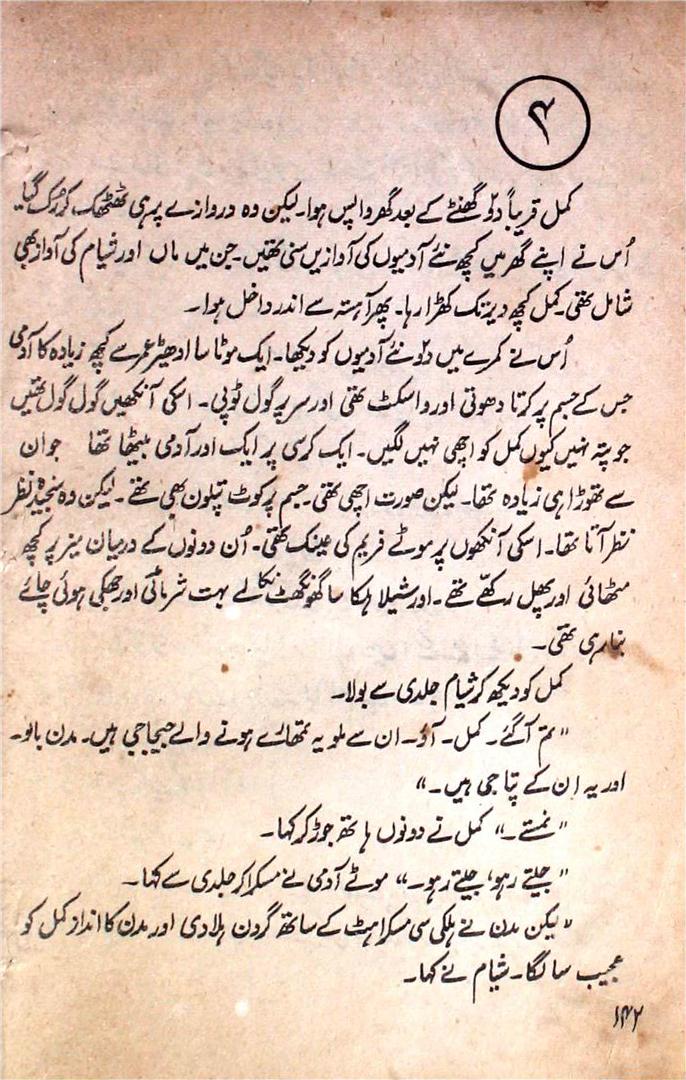 ۴
کمل قریباً دو گھنٹے کے بعد گھر واپس ہوا۔ لیکن وہ دروازے پر ہی ٹھٹھک کر رک گیا۔
اُس نے اپنے گھر میں کچھ نئے آدمیوں کی آوازیں سنی تھیں۔ جن میں ماں اور شیام کی آواز بھی
شامل تھی۔ کمل کچھ دیر تک کھڑا رہا۔ پھر آہستہ سے اندر داخل ہوا۔
اُس نے کمرے میں دو نئے آدمیوں کو دیکھا۔ ایک موٹا سا ادھیڑ عمر سے کچھ زیادہ کا آدمی
جس کے جسم پر کرتا دھوتی اور واسکٹ تھی اور سر پر گول ٹوپی۔ اسکی آنکھیں گول گول تھیں
جو پتہ نہیں کیوں کمل کو اچھی نہیں لگیں۔ ایک کرسی پر ایک اور آدمی بیٹھا تھا جوان
سے تھوڑا ہی زیادہ تھا۔ لیکن صورت اچھی تھی۔ جسم پر کوٹ پتلون بھی تھے۔ لیکن وہ سنجیدہ نظر
نظر آتا تھا۔ اسکی آنکھوں پر موٹے فریم کی عینک تھی۔ اُن دونوں کے درمیان میز پر کچھ
مٹھائی اور پھل رکھے تھے۔ اور شیلا ہلکا سا گھونگھٹ نکالے بہت شرمائی اور جھکی ہوئی چائے
بنا رہی تھی۔
کمل کو دیکھ کر شیام جلدی سے بولا۔
"تم آ گئے۔ کمل۔ آؤ۔ ان سے ملو یہ تمھارے ہونے والے جیجا جی ہیں۔ مدن بابو۔
اور یہ اِن کے پتا جی ہیں۔"
"نمستے۔" کمل نے دونوں ہاتھ جوڑ کر کہا۔
"جیتے رہو، جیتے رہو۔" موٹے آدمی نے مسکرا کر جلدی سے کہا۔
"لیکن مدن نے ہلکی سی مسکراہٹ کے ساتھ گردن ہلا دی اور مدن کا انداز کمل کو
عجیب سا لگا۔ شیام نے کہا۔
۱۴۲